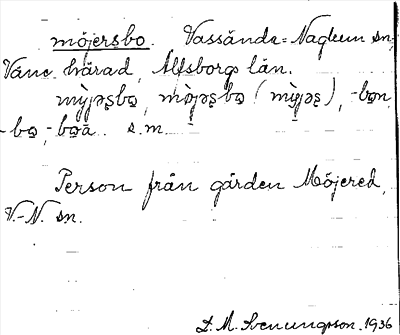 möjersbo. Vassända-Naglum sn,
Väne härad, Älfsborgs län.
mỳjəʂbo̥, mòjəʂbo̥ (mỳjəʂ), -bo̥n
-bo̥, -bo̥a.. s.m.
Person från gården Möjered,
V.-N. sn.
L. M. Svenungsson. 1936